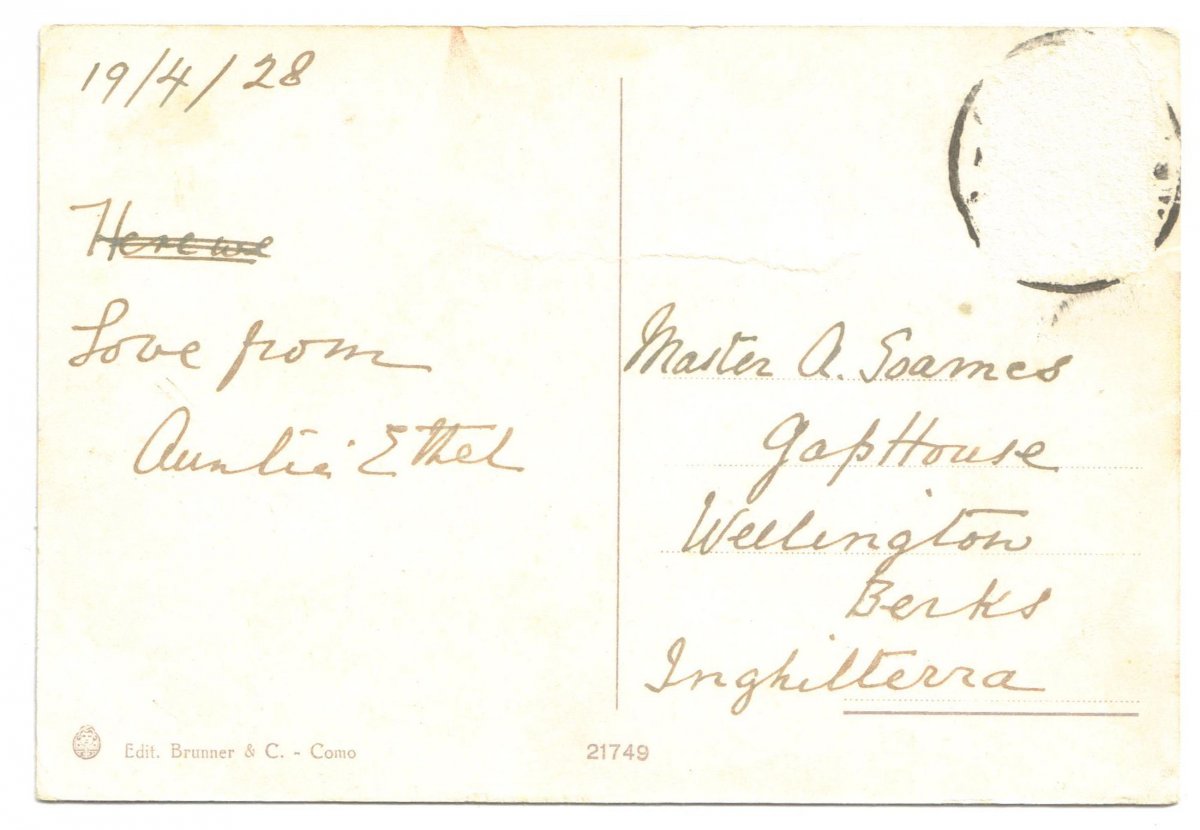 19/4/28
Here we
Love from
Auntie Ethel
Master A. Soames
Gap House
Wellington
Berks
Inghilterra
Edit. Brunner & C. - Como
21749